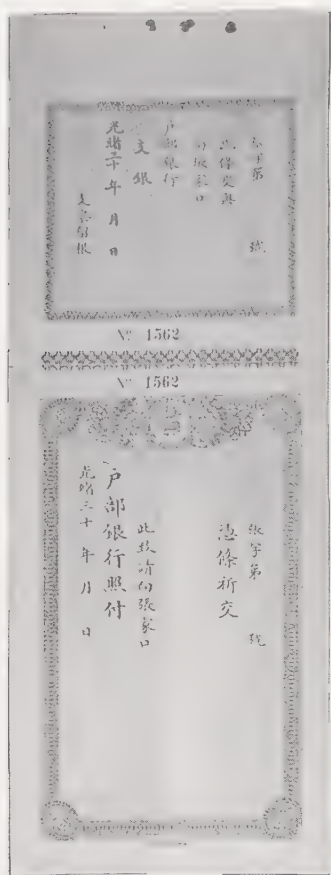 號
憑條交與
向張家口
戶部銀行
支銀
光緒三十年 月 日
支票留根
Nº 1562
Nº 1562
張字第 號
憑條祈交
此致請向張家口
戶部銀行照付
光緒三十 年 月 日